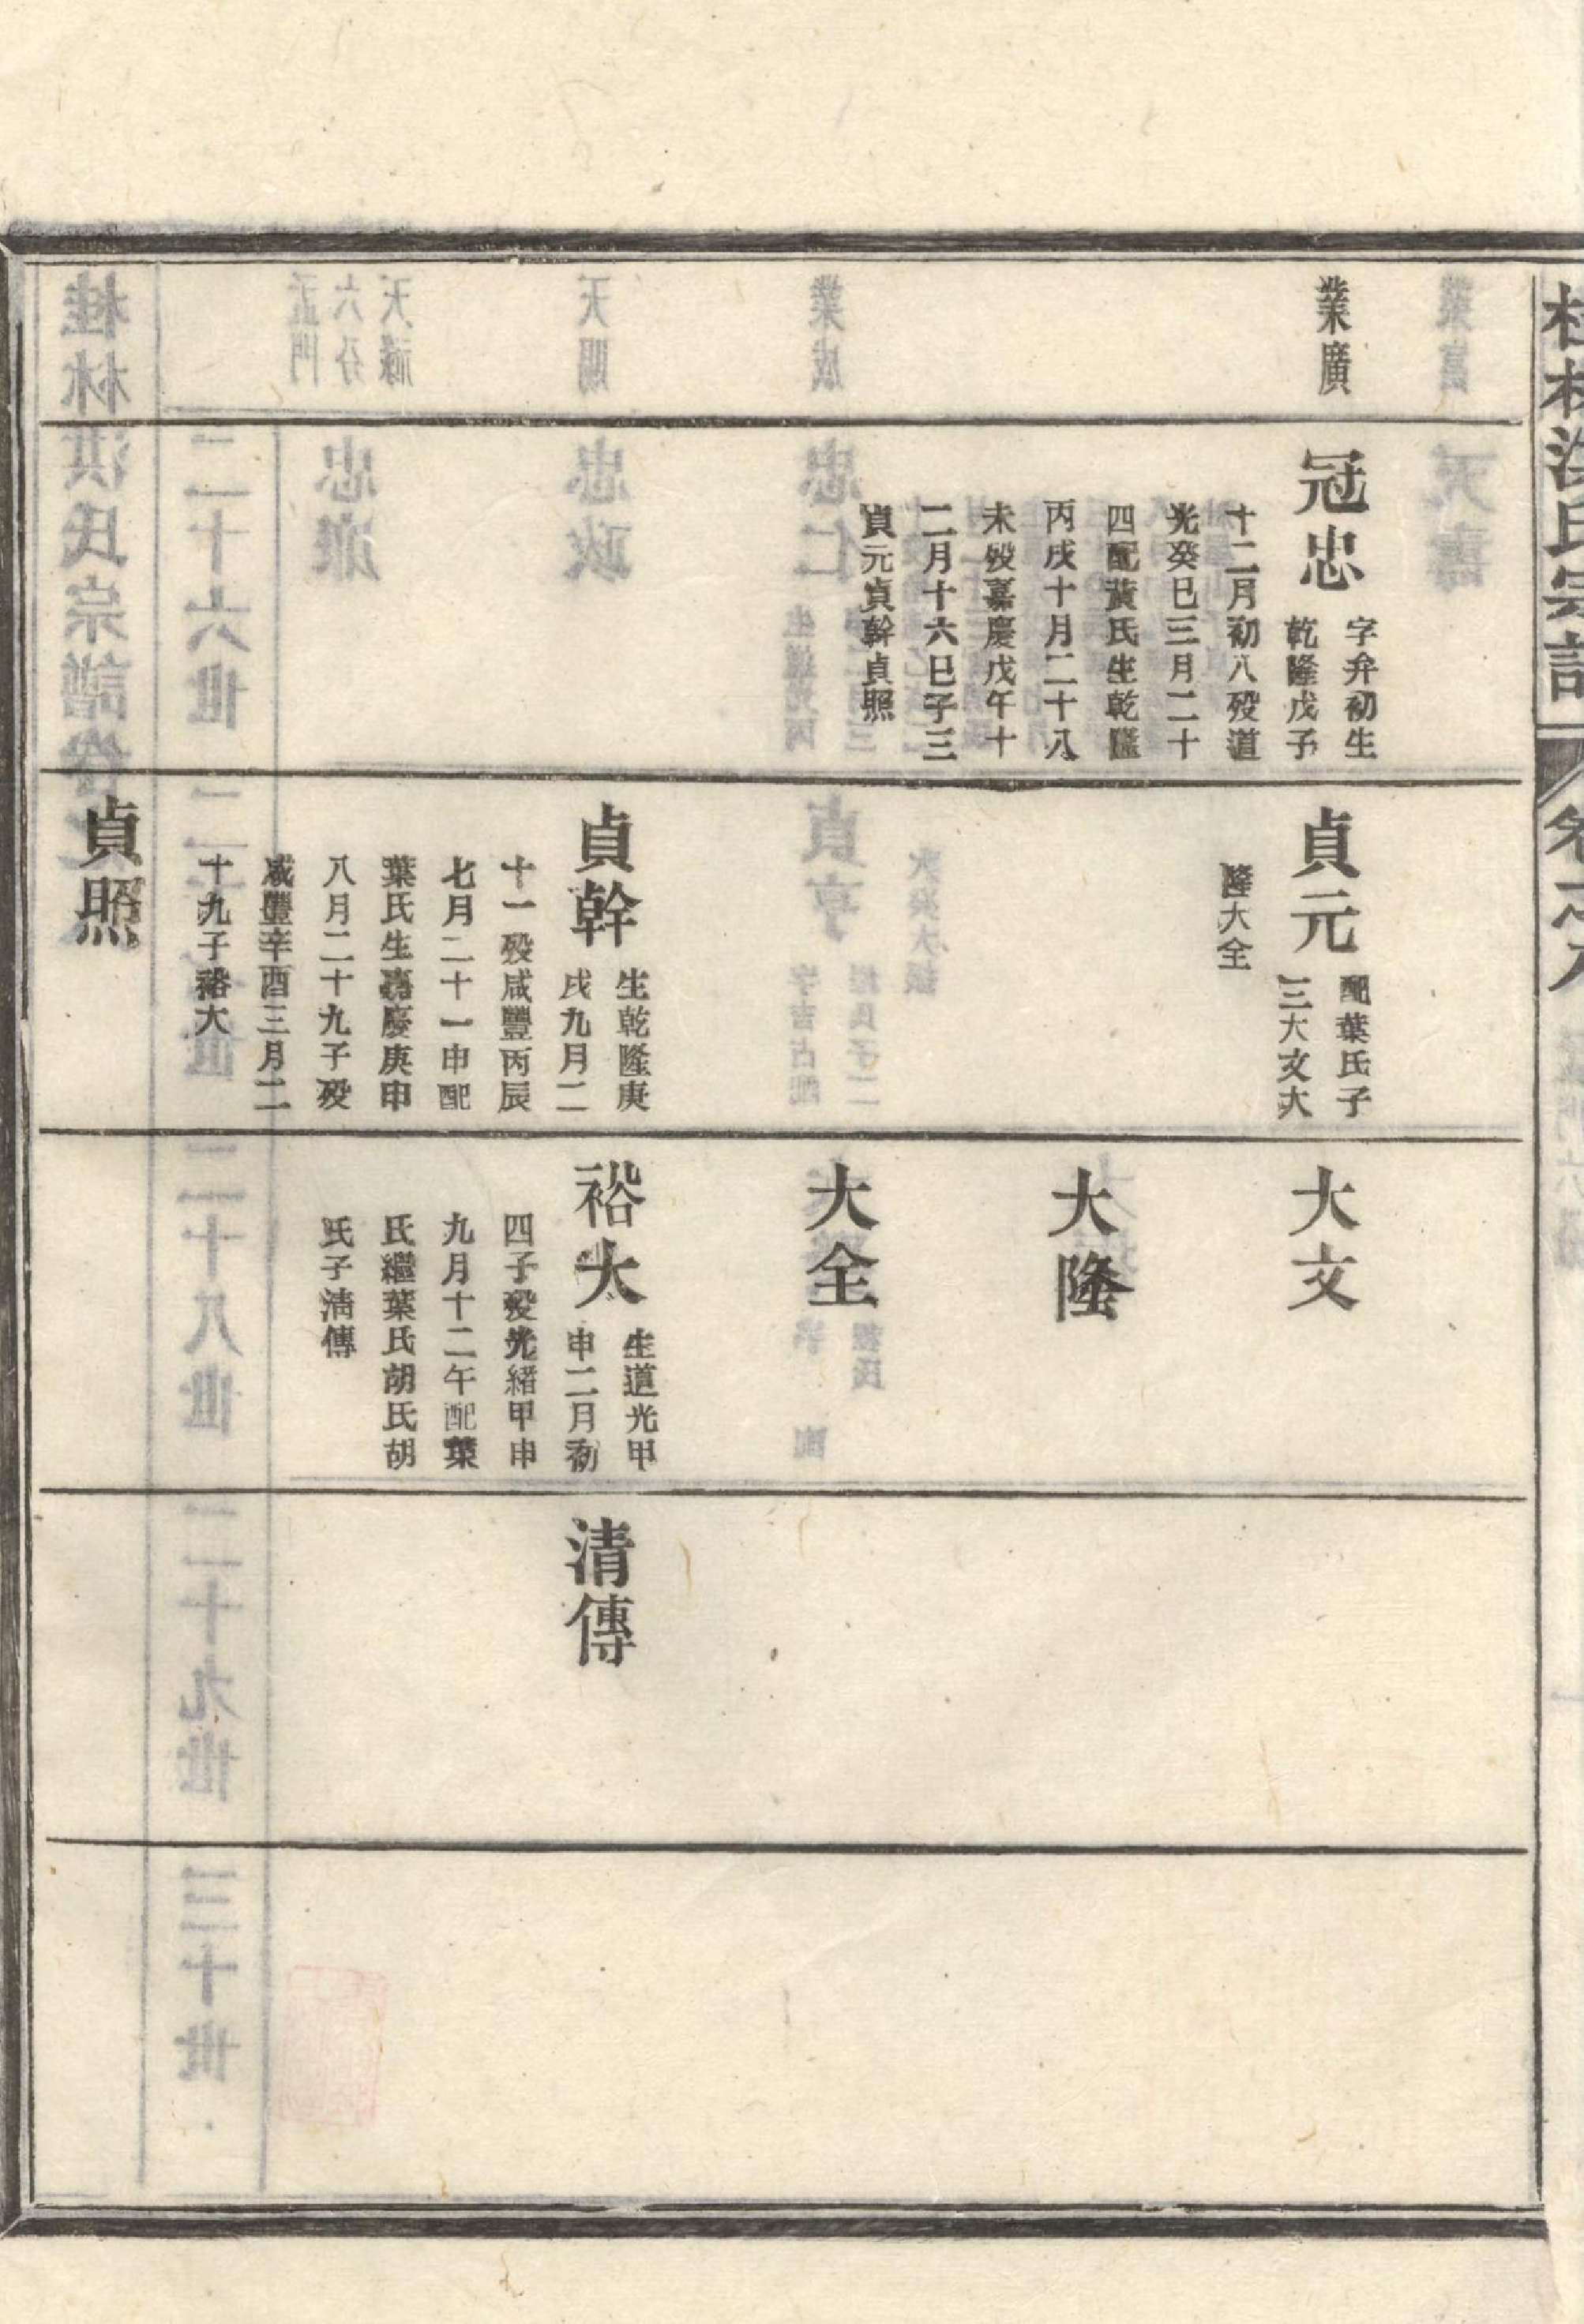 桂林洪氏宗譜
卷之八
業廣
冠忠
字弁初生
乾隆戊子
十二月初八歿道
光癸巳三月二十
四配黃氏生乾隆
丙戌十月二十八
未歿嘉慶戊午十
二月十六巳子三
貞元貞幹貞照
貞元
配葉氏子
三大文大
隆大全
貞幹
生乾隆庚
戌九月二
十一歿咸豐丙辰
七月二十一申配
葉氏生嘉慶庚申
八月二十九子歿
咸豐辛酉三月二
十九子裕大
貞照
大文
大隆
大全
裕大
生道光甲
申二月初
四子歿光緒甲申
九月十二午配葉
氏繼葉氏胡氏胡
氏子清傳
清傳